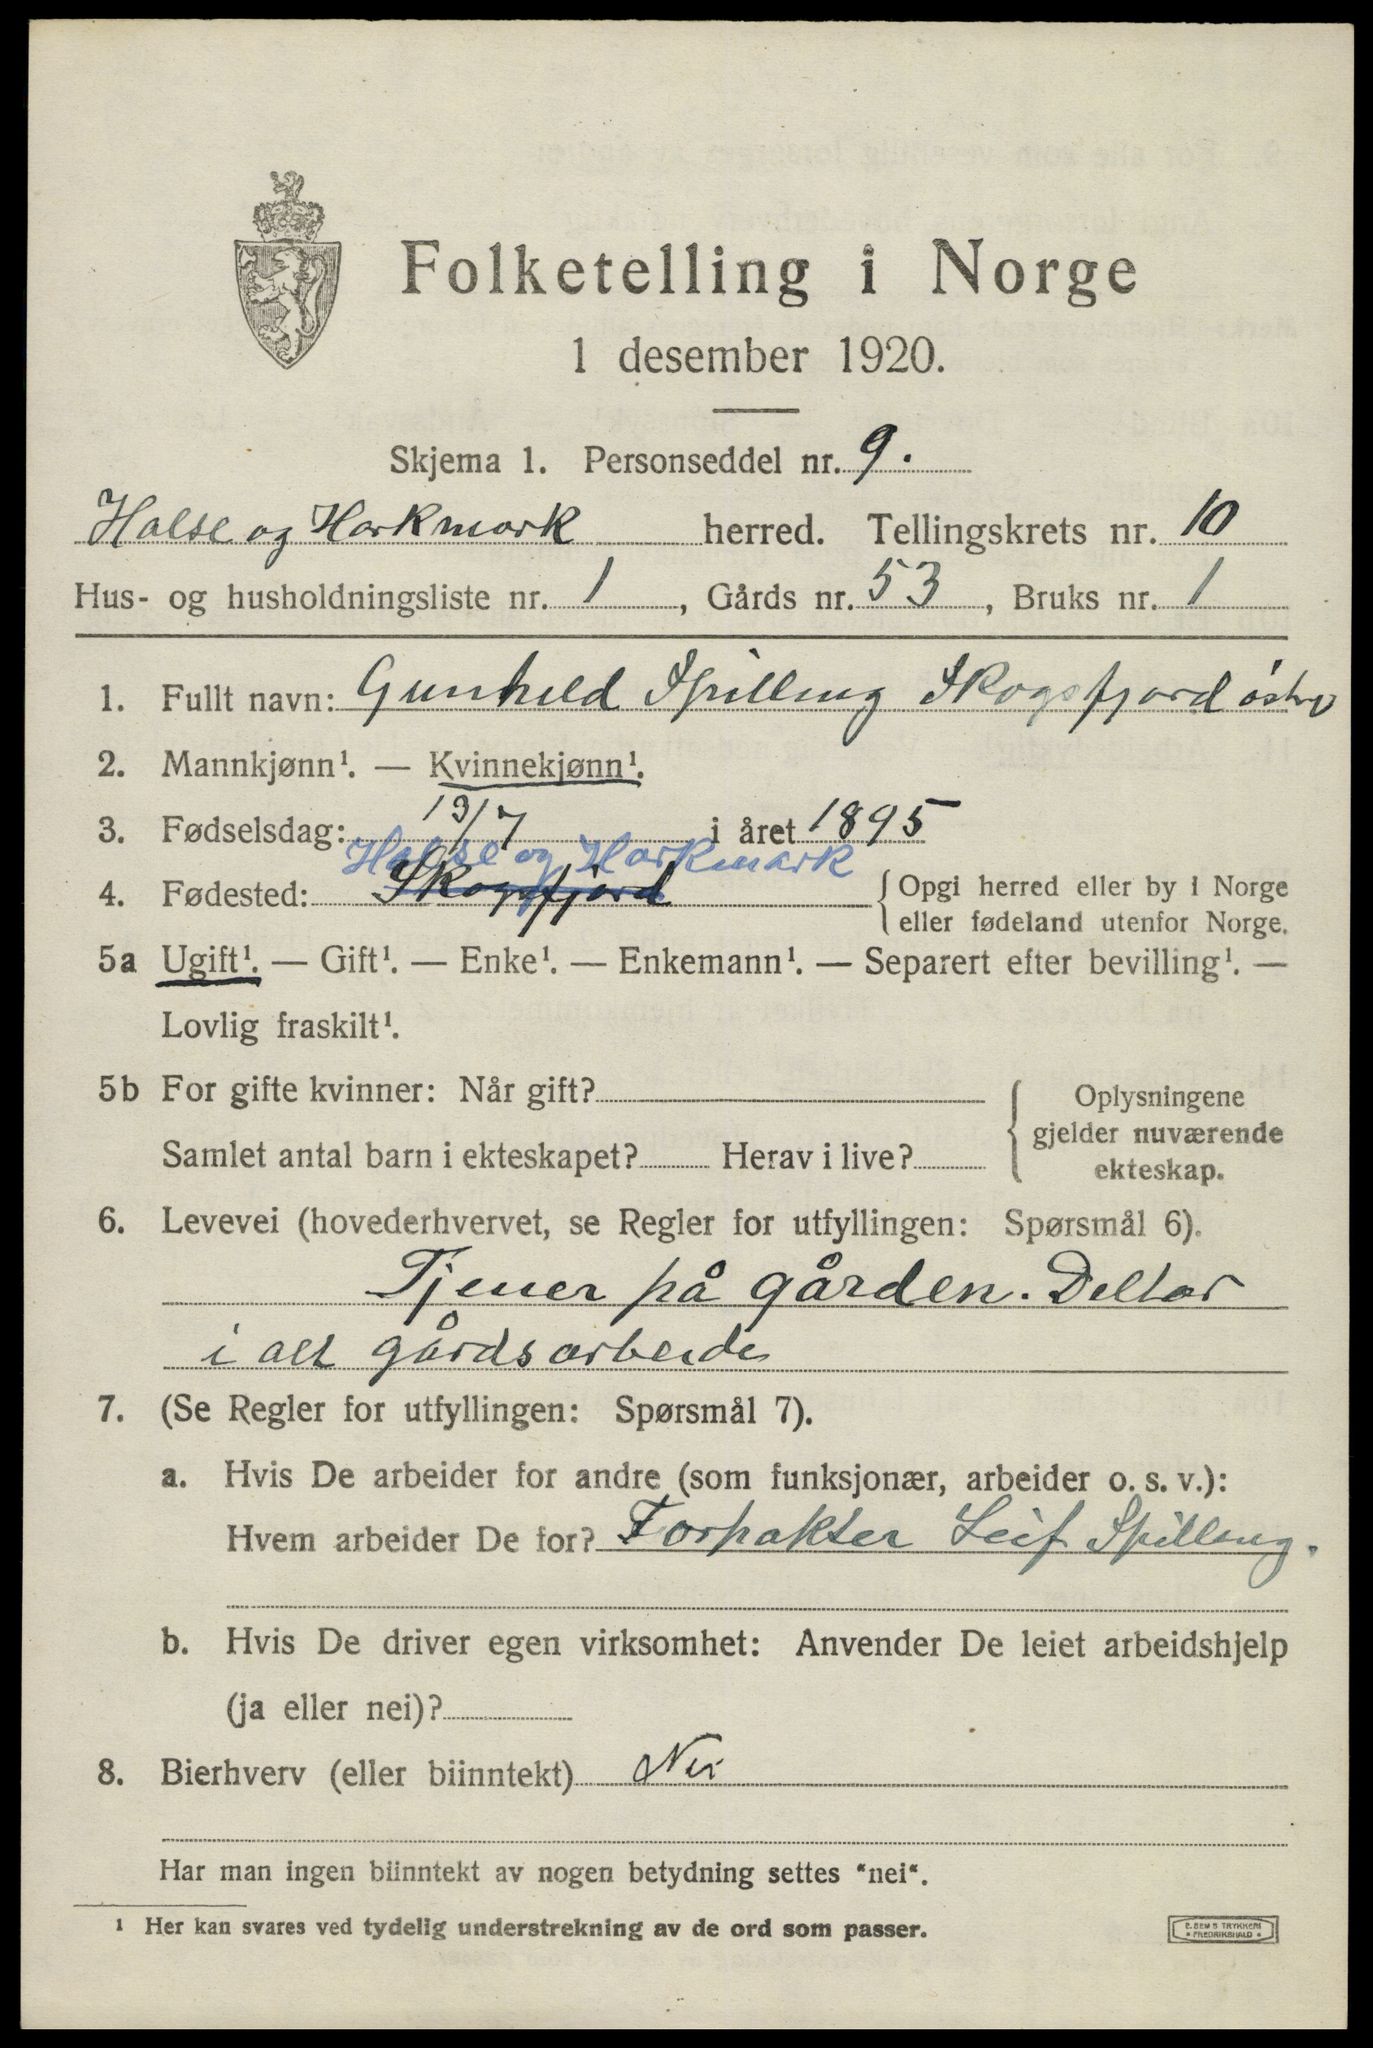 Folketelling i Norge
1 desember 1920.
Skjema 1. Personseddel nr. 9.
Halse og Harkmark herred. Tellingskrets nr. 10
Hus- og husholdningsliste nr. 1, Gårds nr. 53, Bruks nr. 1
1. Fullt navn: Gunhild Spilling Skogsfjord østre
2. Mannkjønn¹. — Kvinnekjønn¹.
3. Fødselsdag: 19/7 i året 1895
Halse og Harkmark
4. Fødested: Skogsfjord { Opgi herred eller by i Norge
eller fødeland utenfor Norge.
5a Ugift¹. — Gift¹. — Enke¹. — Enkemann¹. — Separert efter bevilling¹. —
Lovlig fraskilt¹.
5b For gifte kvinner: Når gift?
Samlet antal barn i ekteskapet? Herav i live?
Oplysningene
gjelder nuværende
ekteskap.
6. Levevei (hovederhvervet, se Regler for utfyllingen: Spørsmål 6).
Tjener på gården. Deltar
i alt gårdsarbeide
7. (Se Regler for utfyllingen: Spørsmål 7).
a. Hvis De arbeider for andre (som funksjonær, arbeider o. s. v.):
Hvem arbeider De for? Forpakter Leif Spilling.
b. Hvis De driver egen virksomhet: Anvender De leiet arbeidshjelp
(ja eller nei)?
8. Bierhverv (eller biinntekt) Nei
Har man ingen biinntekt av nogen betydning settes "nei".
¹ Her kan svares ved tydelig understrekning av de ord som passer.
E. SEM'S TRYKKERI
FREDRIKSHALD